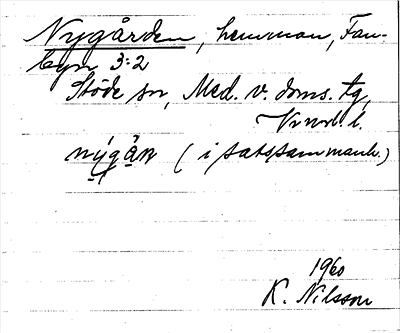 Nygården, hemman, Fan-
byn 3:2
Stöde sn, Med. v. doms. tg,
Vnorl. l.
nýgån (i satssammanh.)
1960
K. Nilsson